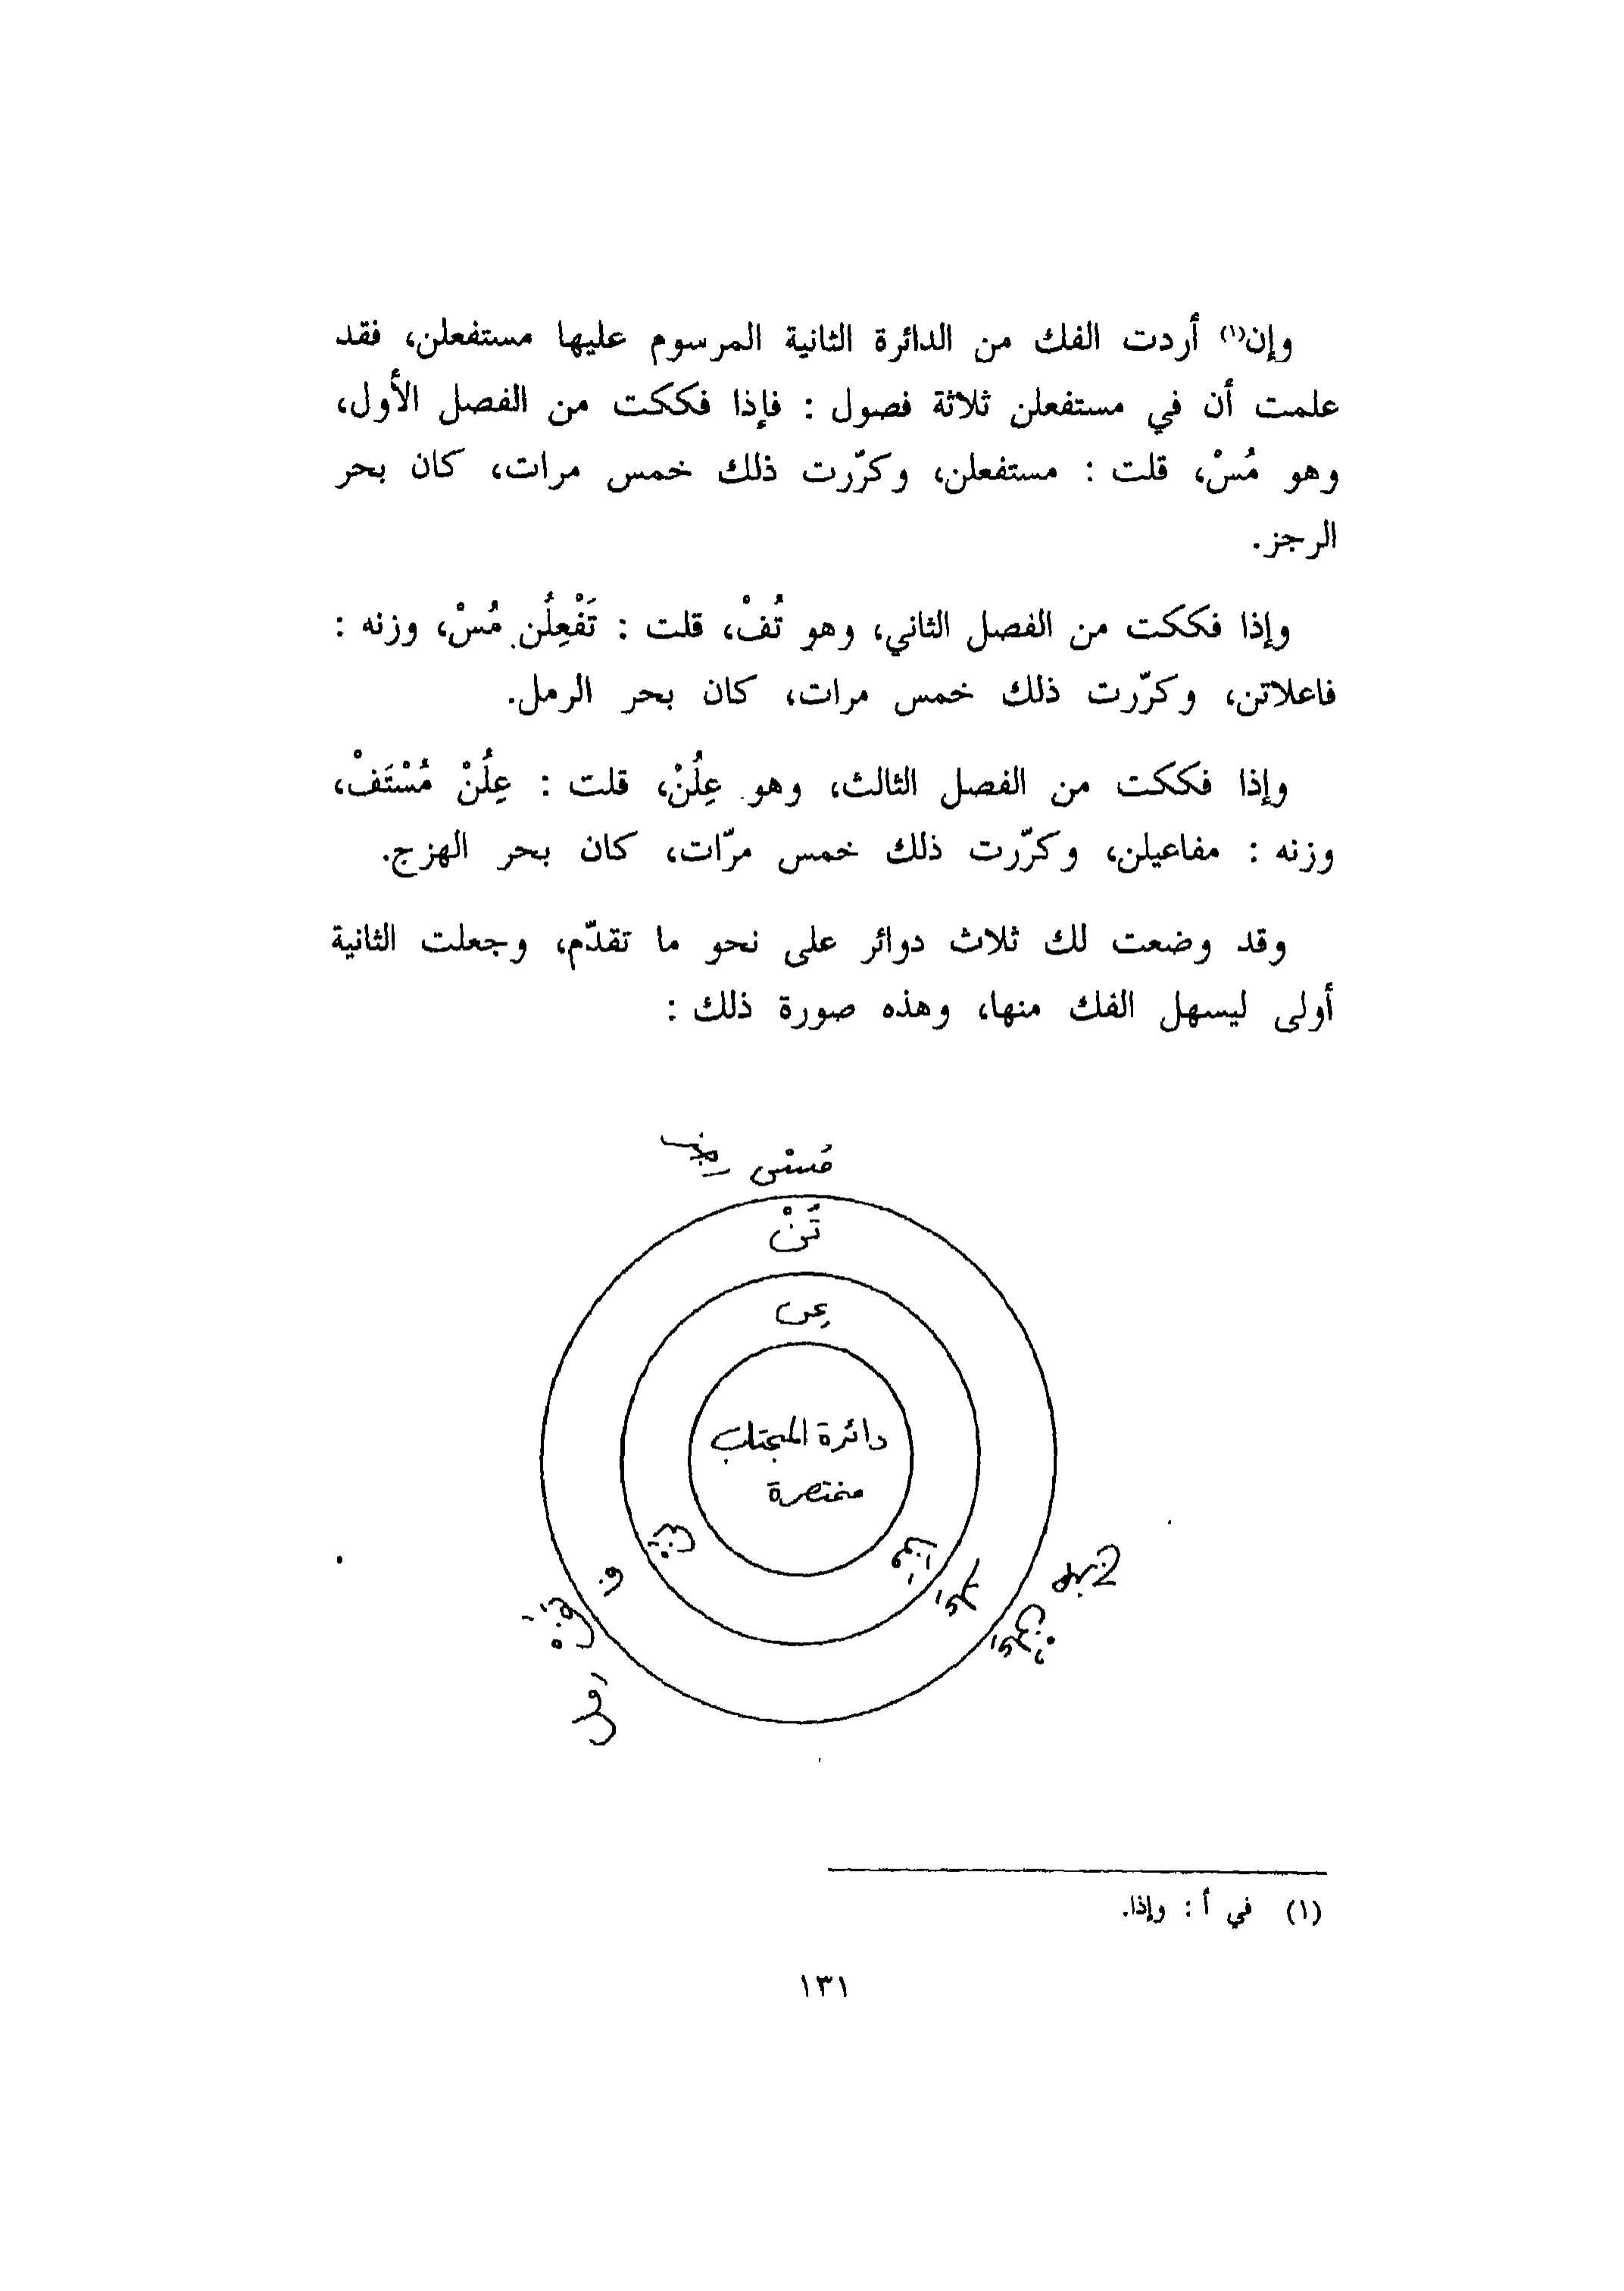 وإن(١) أردت الفك من الدائرة الثانية المرسوم عليها مستفعلن، فقد
علمت أن في مستفعلن ثلاثة فصول : فإذا فككت من الفصل الأول،
وهو مُسْ، قلت : مستفعلن، وكرّرت ذلك خمس مرات، كان بحر
الرجز.
وإذا فككت من الفصل الثاني، وهو تُفْ، قلت : تَفْعِلُن مُسْ، وزنه :
فاعلاتن، وكرّرت ذلك خمس مرات، كان بحر الرمل.
وإذا فككت من الفصل الثالث، وهو عِلُنْ، قلت : عِلُنْ مُسْتَفْ،
وزنه : مفاعيلن، وكرّرت ذلك خمس مرّات، كان بحر الهزج.
وقد وضعت لك ثلاث دوائر على نحو ما تقدّم، وجعلت الثانية
أولى ليسهل الفك منها، وهذه صورة ذلك :
مُسْ
تُنْ
دائرة المجتلب
مختصرة
رمل
(١) في أ : وإذا.
١٣١